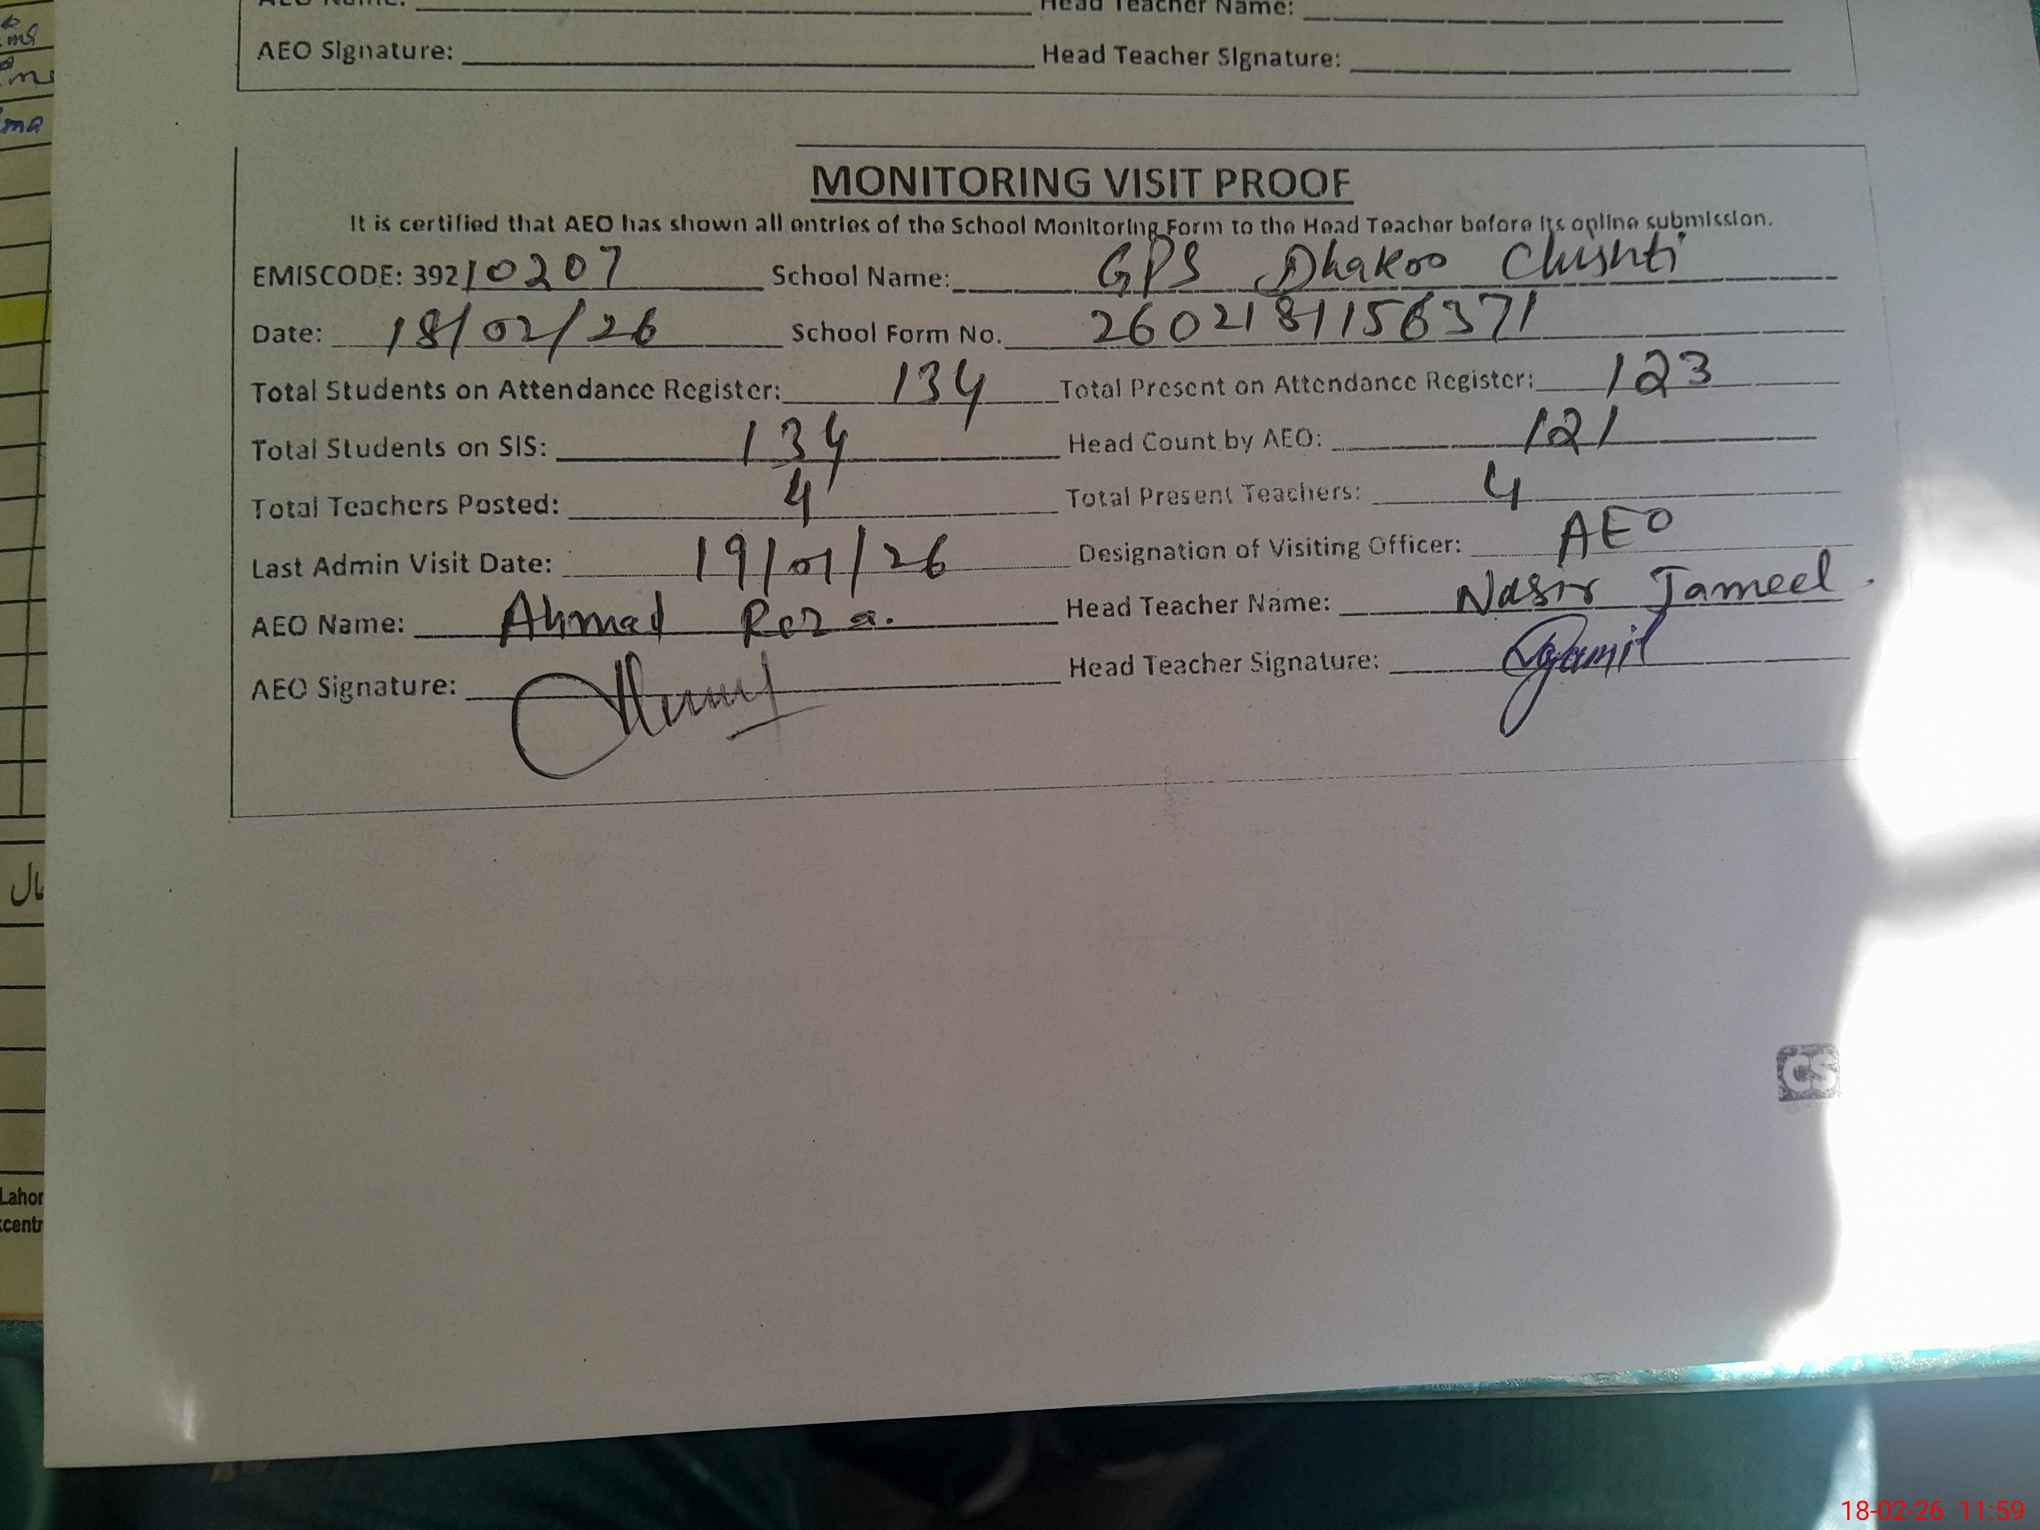 Head Teacher Name:
AEO Signature: Head Teacher Signature:
MONITORING VISIT PROOF
It is certified that AEO has shown all entries of the School Monitoring Form to the Head Teacher before its online submission.
EMISCODE: 39210207 School Name: GPS Dhakoo Chishti
Date: 18/02/26 School Form No. 2602181156371
Total Students on Attendance Register: 134 Total Present on Attendance Register: 123
Total Students on SIS: 134 Head Count by AEO: 121
Total Teachers Posted: 4 Total Present Teachers: 4
Last Admin Visit Date: 19/01/26 Designation of Visiting Officer: AEO
AEO Name: Ahmad Reza. Head Teacher Name: Nasir Jameel.
AEO Signature: Head Teacher Signature:
CS
Lahor
centr
18-02-26 11:59